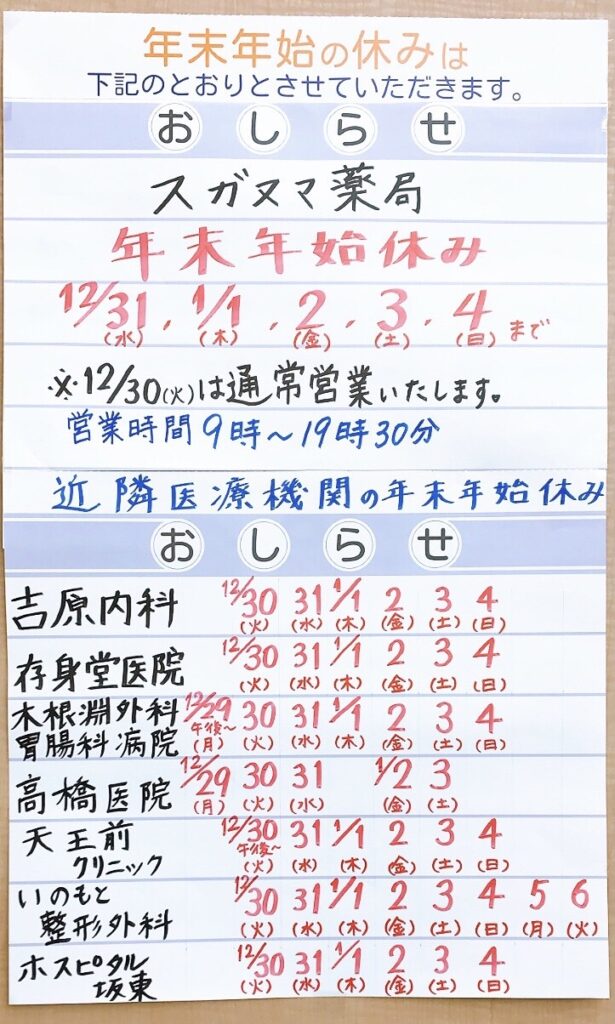 年末年始の休みは
下記のとおりとさせていただきます。
おしらせ
スガヌマ薬局
年末年始休み
12/31(水)．1/1(木)．2(金)．3(土)．4(日)まで
※12/30(火)は通常営業いたします。
営業時間9時〜19時30分
近隣医療機関の年末年始休み
おしらせ
吉原内科 12/30(火) 31(水) 1/1(木) 2(金) 3(土) 4(日)
存身堂医院 12/30(火) 31(水) 1/1(木) 2(金) 3(土) 4(日)
木根淵外科
胃腸科病院 12/29午後〜(月) 30(火) 31(水) 1/1(木) 2(金) 3(土) 4(日)
高橋医院 12/29(月) 30(火) 31(水) 1/2(金) 3(土)
天王前
クリニック 12/30午後〜(火) 31(水) 1/1(木) 2(金) 3(土) 4(日)
いのもと
整形外科 12/30(火) 31(水) 1/1(木) 2(金) 3(土) 4(日) 5(月) 6(火)
ホスピタル
坂東 12/30(火) 31(水) 1/1(木) 2(金) 3(土) 4(日)